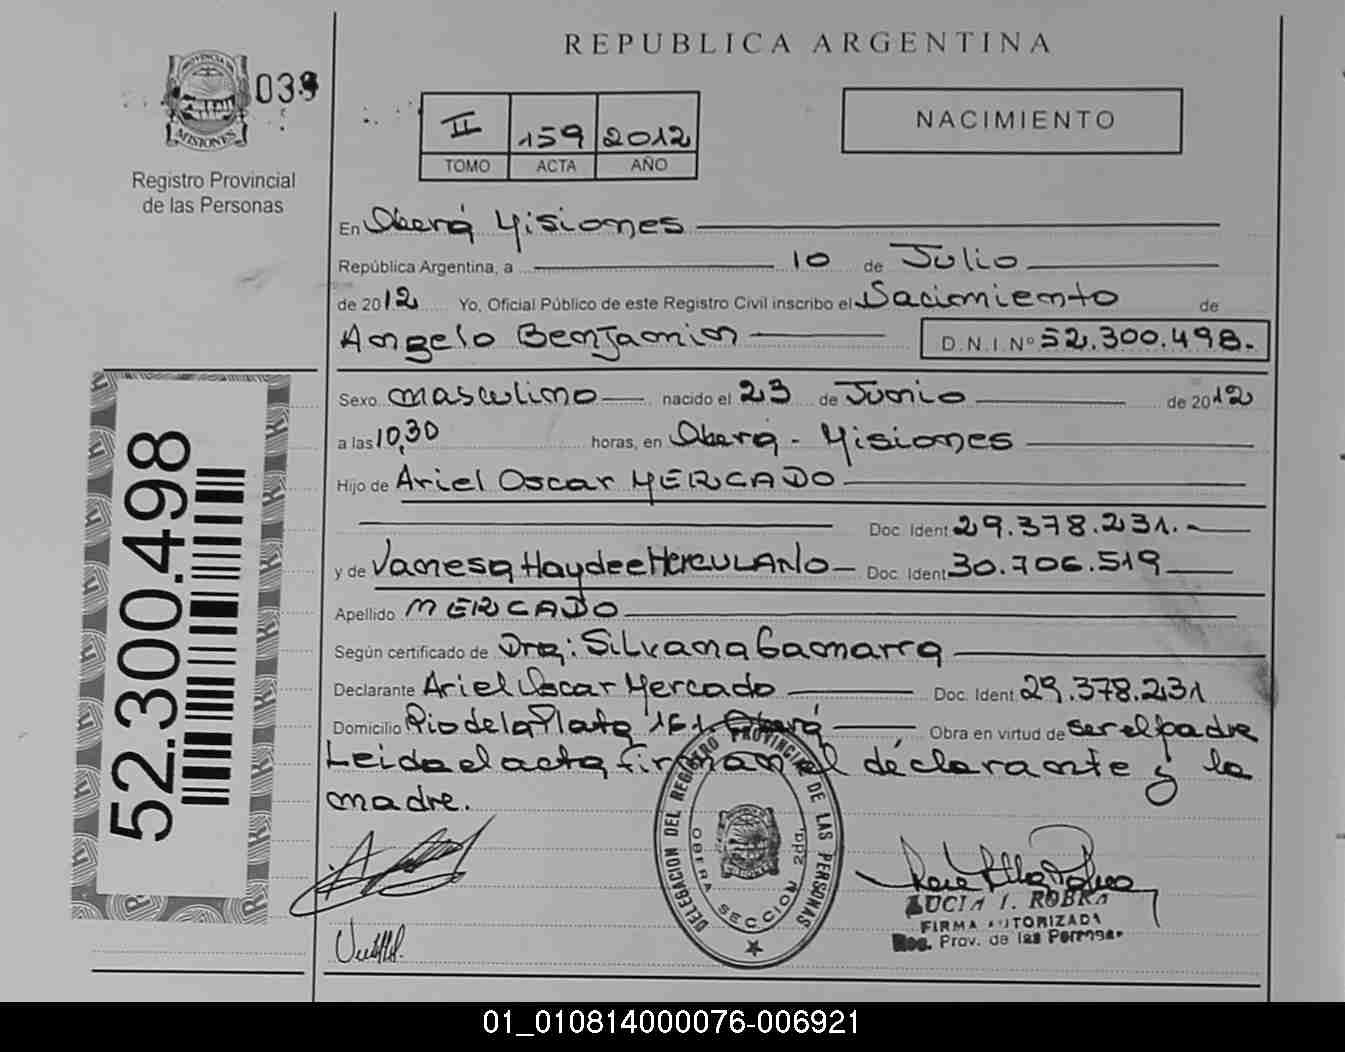 REPUBLICA ARGENTINA
PROVINCIA DE
MISIONES
Registro Provincial
de las Personas
II 159 2012
TOMO ACTA AÑO
NACIMIENTO
En Oberá Misiones
República Argentina, a 10 de Julio
de 2012 Yo, Oficial Público de este Registro Civil inscribo el Nacimiento de
Angelo Benjamin D.N.I. Nº 52.300.498.
Sexo masculino nacido el 23 de Junio de 2012
a las 10,30 horas, en Oberá - Misiones
Hijo de Ariel Oscar MERCADO
Doc. Ident. 29.378.231.-
y de Vanesa Haydee HERCULANO Doc. Ident. 30.706.519
Apellido MERCADO
Según certificado de Dra: Silvana Gamarra
Declarante Ariel Oscar Mercado Doc. Ident. 29.378.231
Domicilio Rio de la Plata 161. Oberá Obra en virtud de ser el padre
Leida el acta, firman el declarante y la
madre.
52.300.498
DELEGACION DEL REGISTRO PROVINCIAL DE LAS PERSONAS
OBERA SECCION 2da.
LUCIA I. ROBKA
FIRMA AUTORIZADA
Reg. Prov. de las Personas
01_010814000076-006921